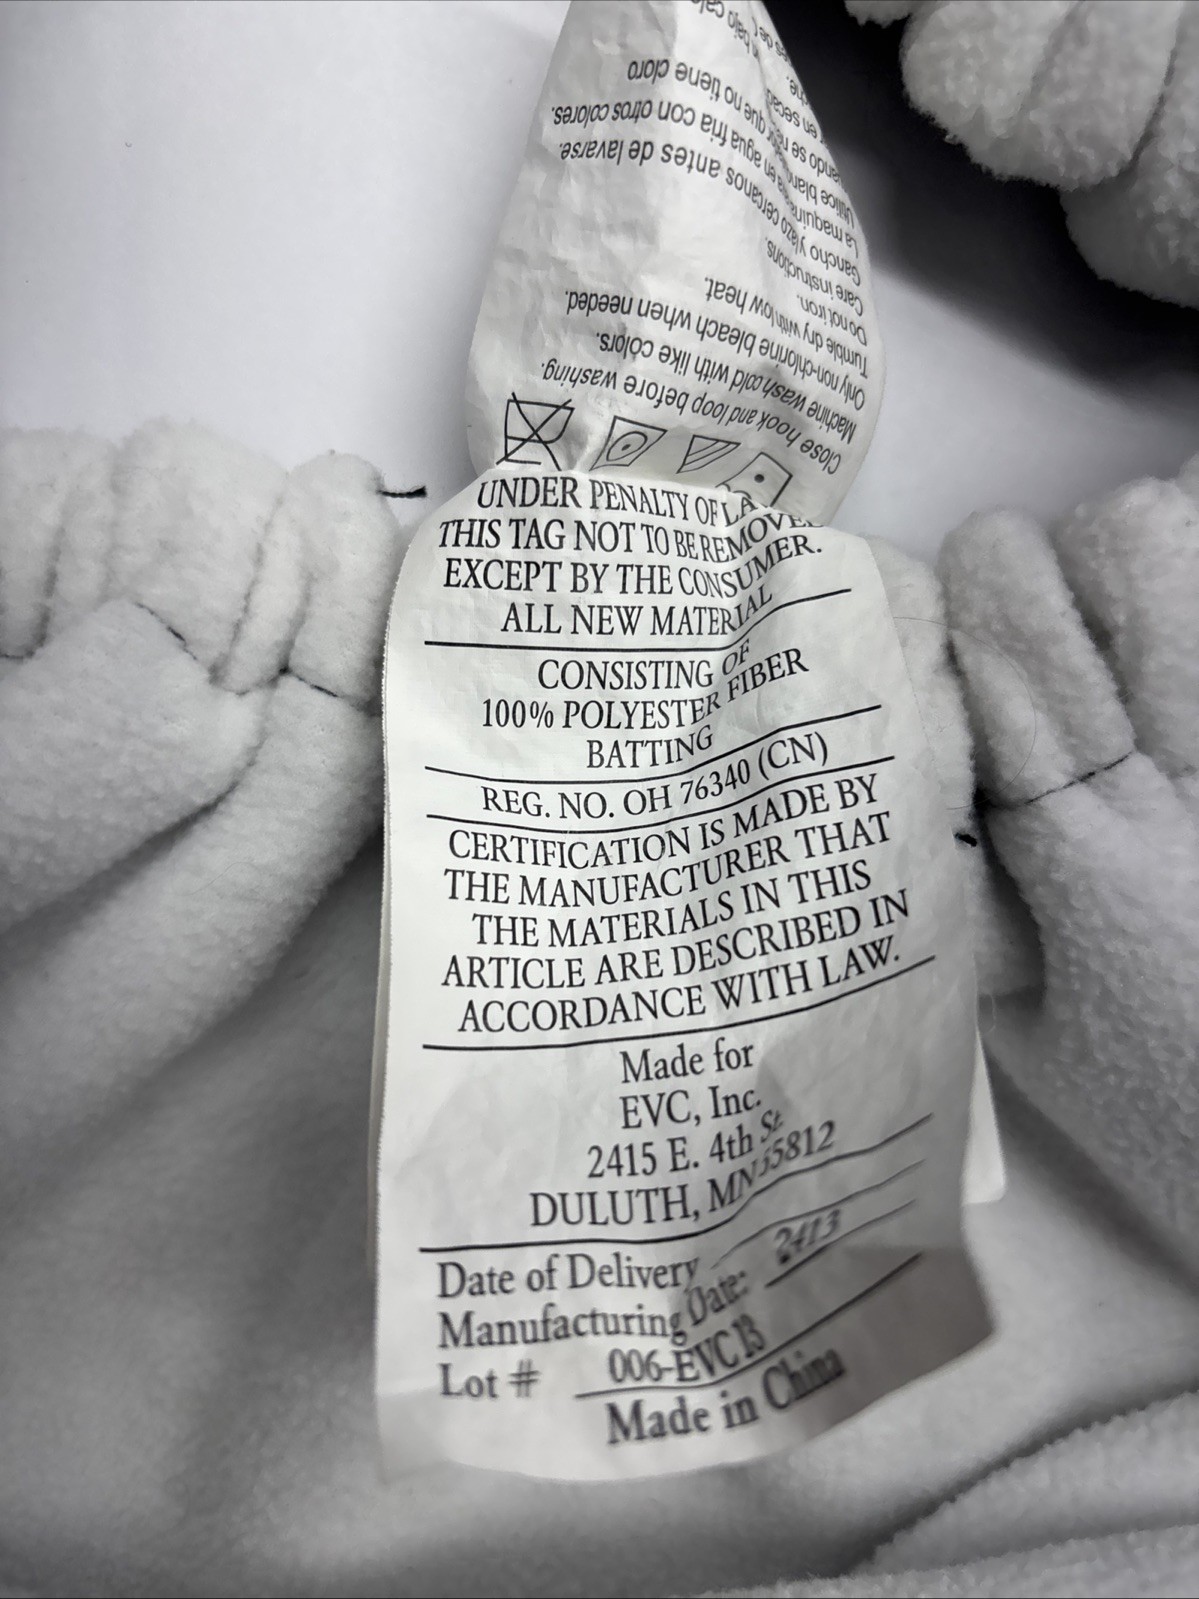 UNDER PENALTY OF LA
THIS TAG NOT TO BE REMOVED
EXCEPT BY THE CONSUMER.
ALL NEW MATERIAL
CONSISTING OF
100% POLYESTER FIBER
BATTING
REG. NO. OH 76340 (CN)
CERTIFICATION IS MADE BY
THE MANUFACTURER THAT
THE MATERIALS IN THIS
ARTICLE ARE DESCRIBED IN
ACCORDANCE WITH LAW.
Made for
EVC, Inc.
2415 E. 4th St.
DULUTH, MN 55812
Date of Delivery
Manufacturing Date: 2413
Lot # 006-EVC13
Made in China
Close hook and loop before washing.
Machine wash cold with like colors.
Only non-chlorine bleach when needed.
Tumble dry with low heat.
Do not iron.
Care instructions.
Gancho y lazo cercanos antes de lavarse.
La maquina en agua fria con otros colores.
que no tiene cloro
bajo